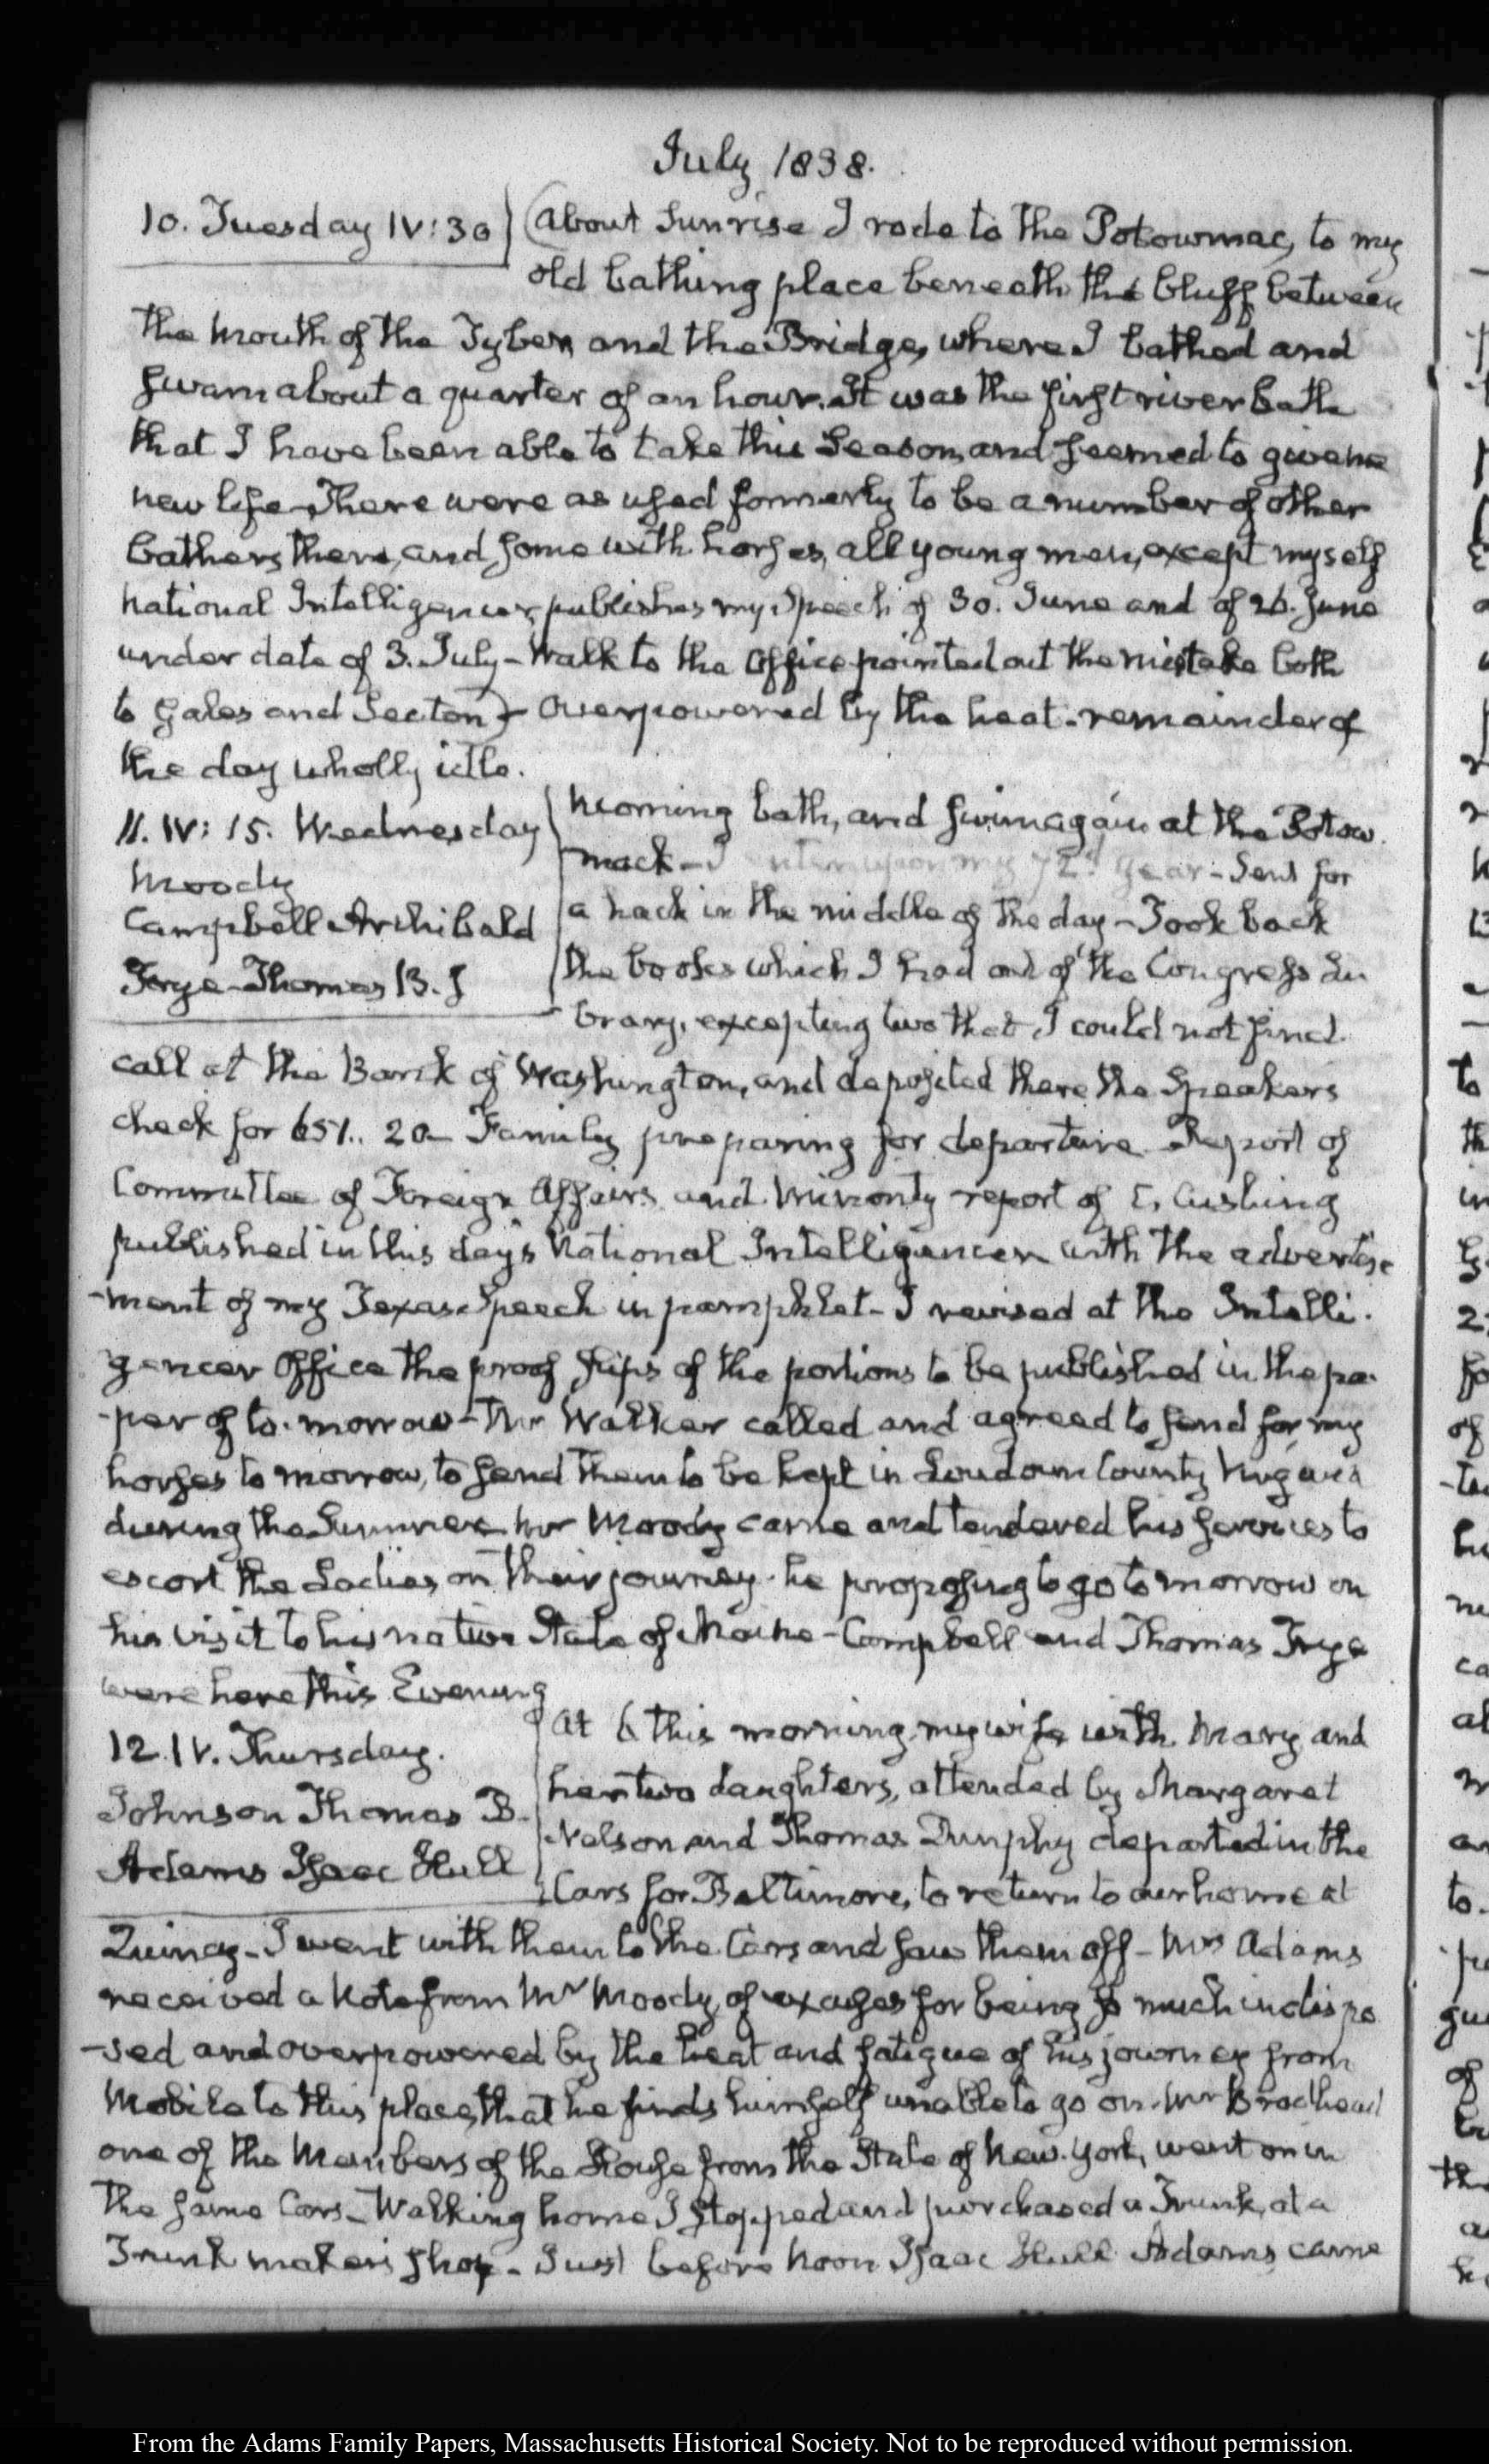 July 1838.
10. Tuesday IV:30 (About Sunrise I rode to the Potowmac, to my
old bathing place beneath the bluff between
the mouth of the Tyber, and the Bridge, where I bathed and
swam about a quarter of an hour. It was the first river bath
that I have been able to take this Season, and seemed to give me
new life. There were as used formerly to be a number of other
bathers there, and some with horses, all young men, except myself
National Intelligencer, publishes my Speech of 30. June and of 26. June
under date of 3. July - Walk to the Office pointed out the mistake both
to Gales and Seaton) - Overpowered by the heat - remainder of
the day wholly idle.
11. IV: 15. Wednesday
Moody
Campbell Archibald
Frye Thomas B. J
Morning bath, and swim again at the Potow
mack - I enter upon my 72d. year - Sent for
a hack in the middle of the day - Took back
the books which I had out of the Congress Li
brary, excepting two that I could not find.
call at the Bank of Washington, and deposited there the Speakers
check for 651.. 20 - Family preparing for departure. Report of
Committee of Foreign Affairs and minority report of C. Cushing
published in this day's National Intelligencer with the advertise
-ment of my Texas Speech in pamphlet - I revised at the Intelli-
gencer Office the proof slips of the portions to be published in the pa-
-per of to-morrow - Mr Walker called and agreed to send for my
horses to morrow, to send them to be kept in Loudoun County Virginia
during the Summer. Mr Moody came and tendered his services to
escort the Ladies, on their journey - he proposing to go to morrow on
his visit to his native State of Maine - Campbell and Thomas Frye
were here this Evening
12. IV. Thursday.
Johnson Thomas B.
Adams Isaac Hull
At 6 this morning, my wife with Mary and
her two daughters, attended by Margaret
Nelson and Thomas Dunphy departed in the
Cars for Baltimore, to return to our home at
Quincy - I went with them to the Cars and saw them off - Mrs Adams
received a Note from Mr Moody, of excuses for being so much indispo
-sed and overpowered by the heat and fatigue of his journey from
Mobile to this place, that he finds himself unable to go on. Mr Brodhead
one of the Members of the House from the State of New-York, went on in
the same Cars - Walking home I stopped and purchased a Trunk, at a
Trunk maker's shop - Just before Noon Isaac Hull Adams came
From the Adams Family Papers, Massachusetts Historical Society. Not to be reproduced without permission.